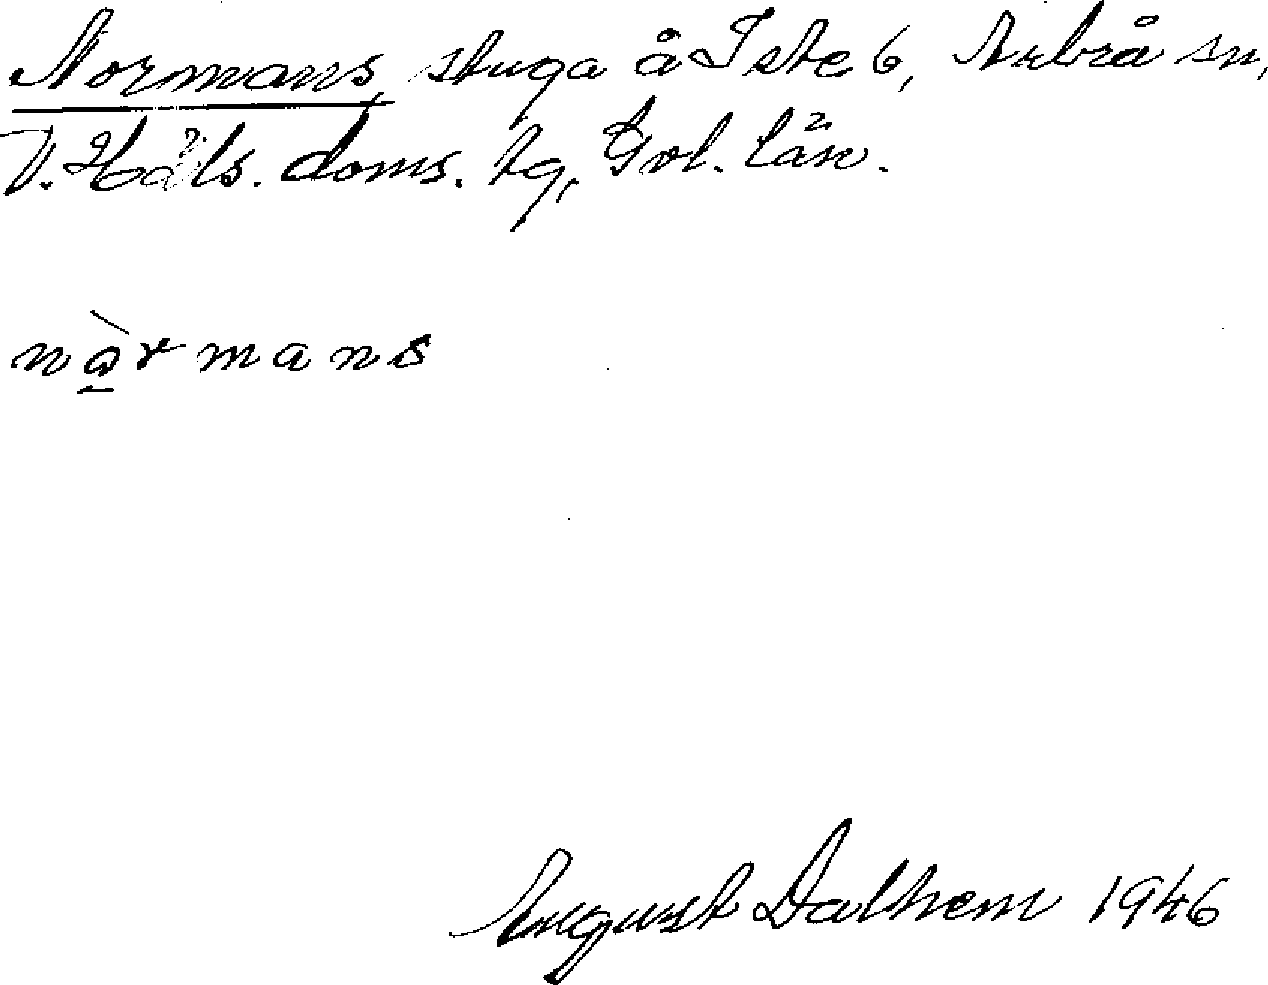 Normans, stuga å Iste 6, Arbrå sn,
V. Häls. doms. tg, Gvl. län.
nàrmans
August Dalhem 1946